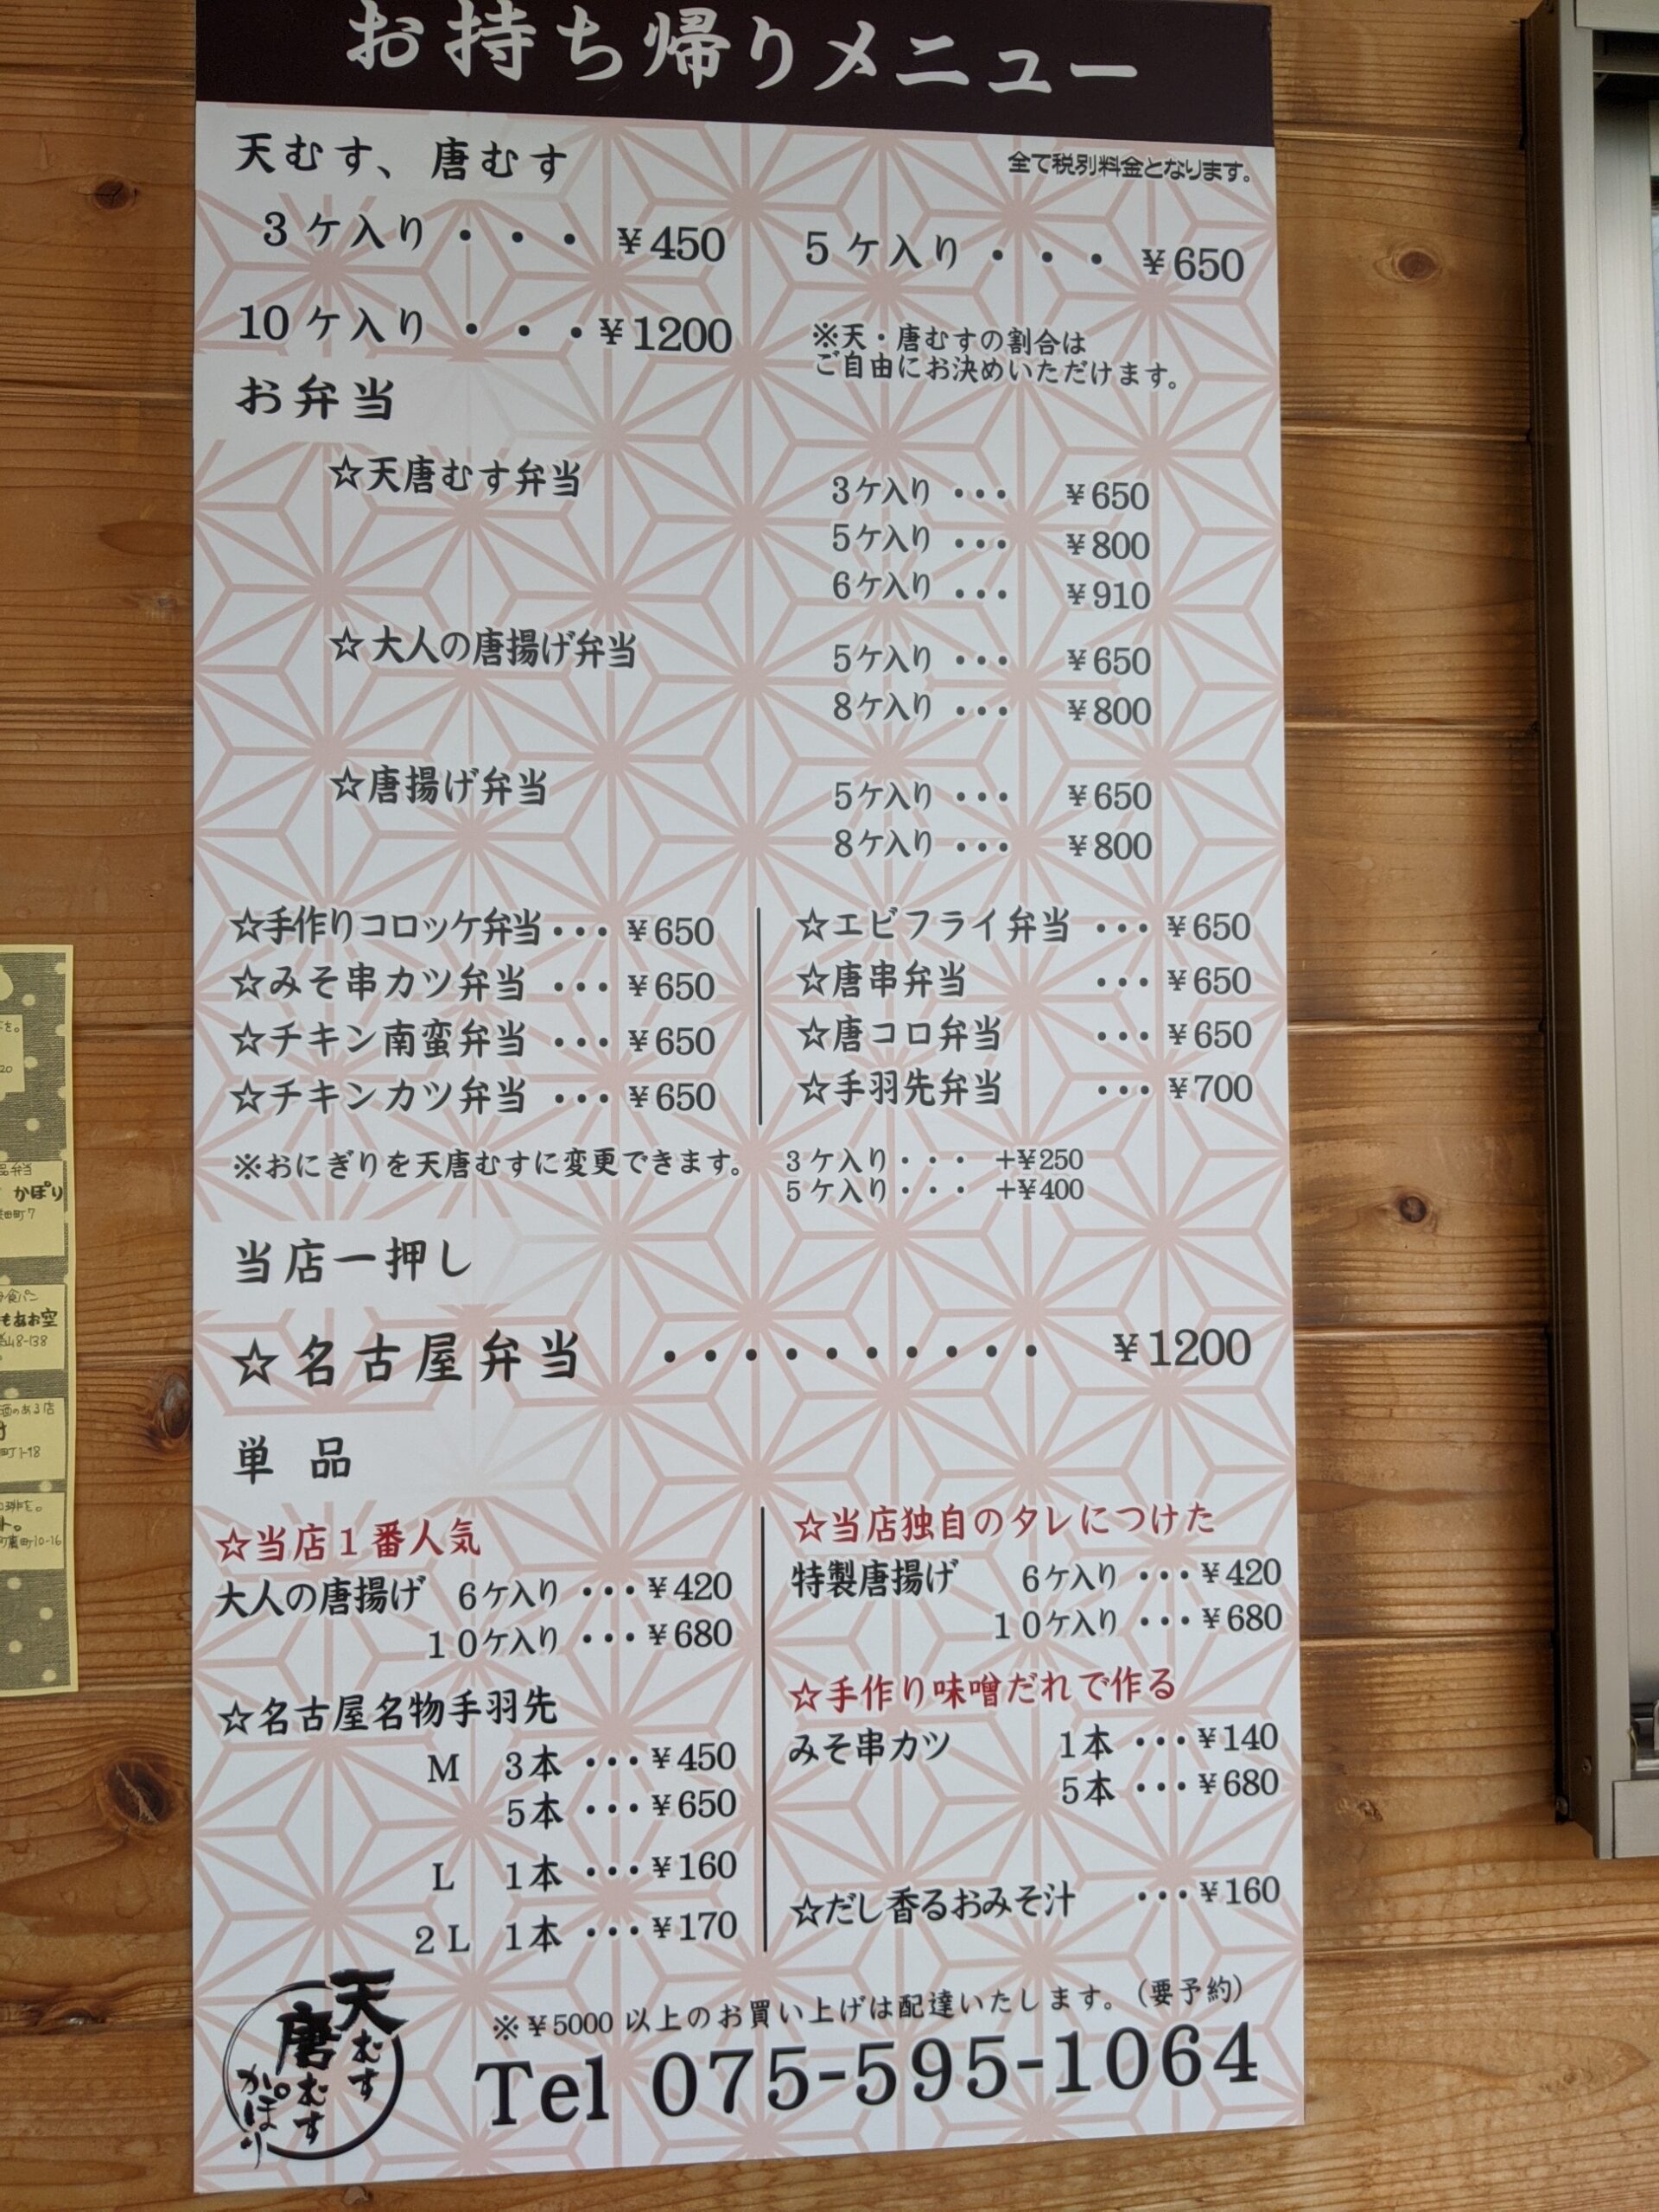 お持ち帰りメニュー
天むす、唐むす
全て税別料金となります。
3ケ入り・・・¥450
5ケ入り・・・¥650
10ケ入り・・・¥1200
※天・唐むすの割合は
ご自由にお決めいただけます。
お弁当
☆天唐むす弁当
3ケ入り・・・¥650
5ケ入り・・・¥800
6ケ入り・・・¥910
☆大人の唐揚げ弁当
5ケ入り・・・¥650
8ケ入り・・・¥800
☆唐揚げ弁当
5ケ入り・・・¥650
8ケ入り・・・¥800
☆手作りコロッケ弁当・・・¥650
☆みそ串カツ弁当・・・¥650
☆チキン南蛮弁当・・・¥650
☆チキンカツ弁当・・・¥650
☆エビフライ弁当・・・¥650
☆唐串弁当・・・¥650
☆唐コロ弁当・・・¥650
☆手羽先弁当・・・¥700
※おにぎりを天唐むすに変更できます。
3ケ入り・・・+¥250
5ケ入り・・・+¥400
当店一押し
☆名古屋弁当・・・・・・・・・・¥1200
単品
☆当店1番人気
大人の唐揚げ 6ケ入り・・・¥420
10ケ入り・・・¥680
☆名古屋名物手羽先
M 3本・・・¥450
5本・・・¥650
L 1本・・・¥160
2L 1本・・・¥170
☆当店独自のタレにつけた
特製唐揚げ 6ケ入り・・・¥420
10ケ入り・・・¥680
☆手作り味噌だれで作る
みそ串カツ 1本・・・¥140
5本・・・¥680
☆だし香るおみそ汁・・・¥160
天むす
唐むす
かぽり
※¥5000以上のお買い上げは配達いたします。(要予約)
Tel 075-595-1064
品弁当
かぽり
町7
食パン
もあお空
8-138
酒のある店
町1-98
町10-16